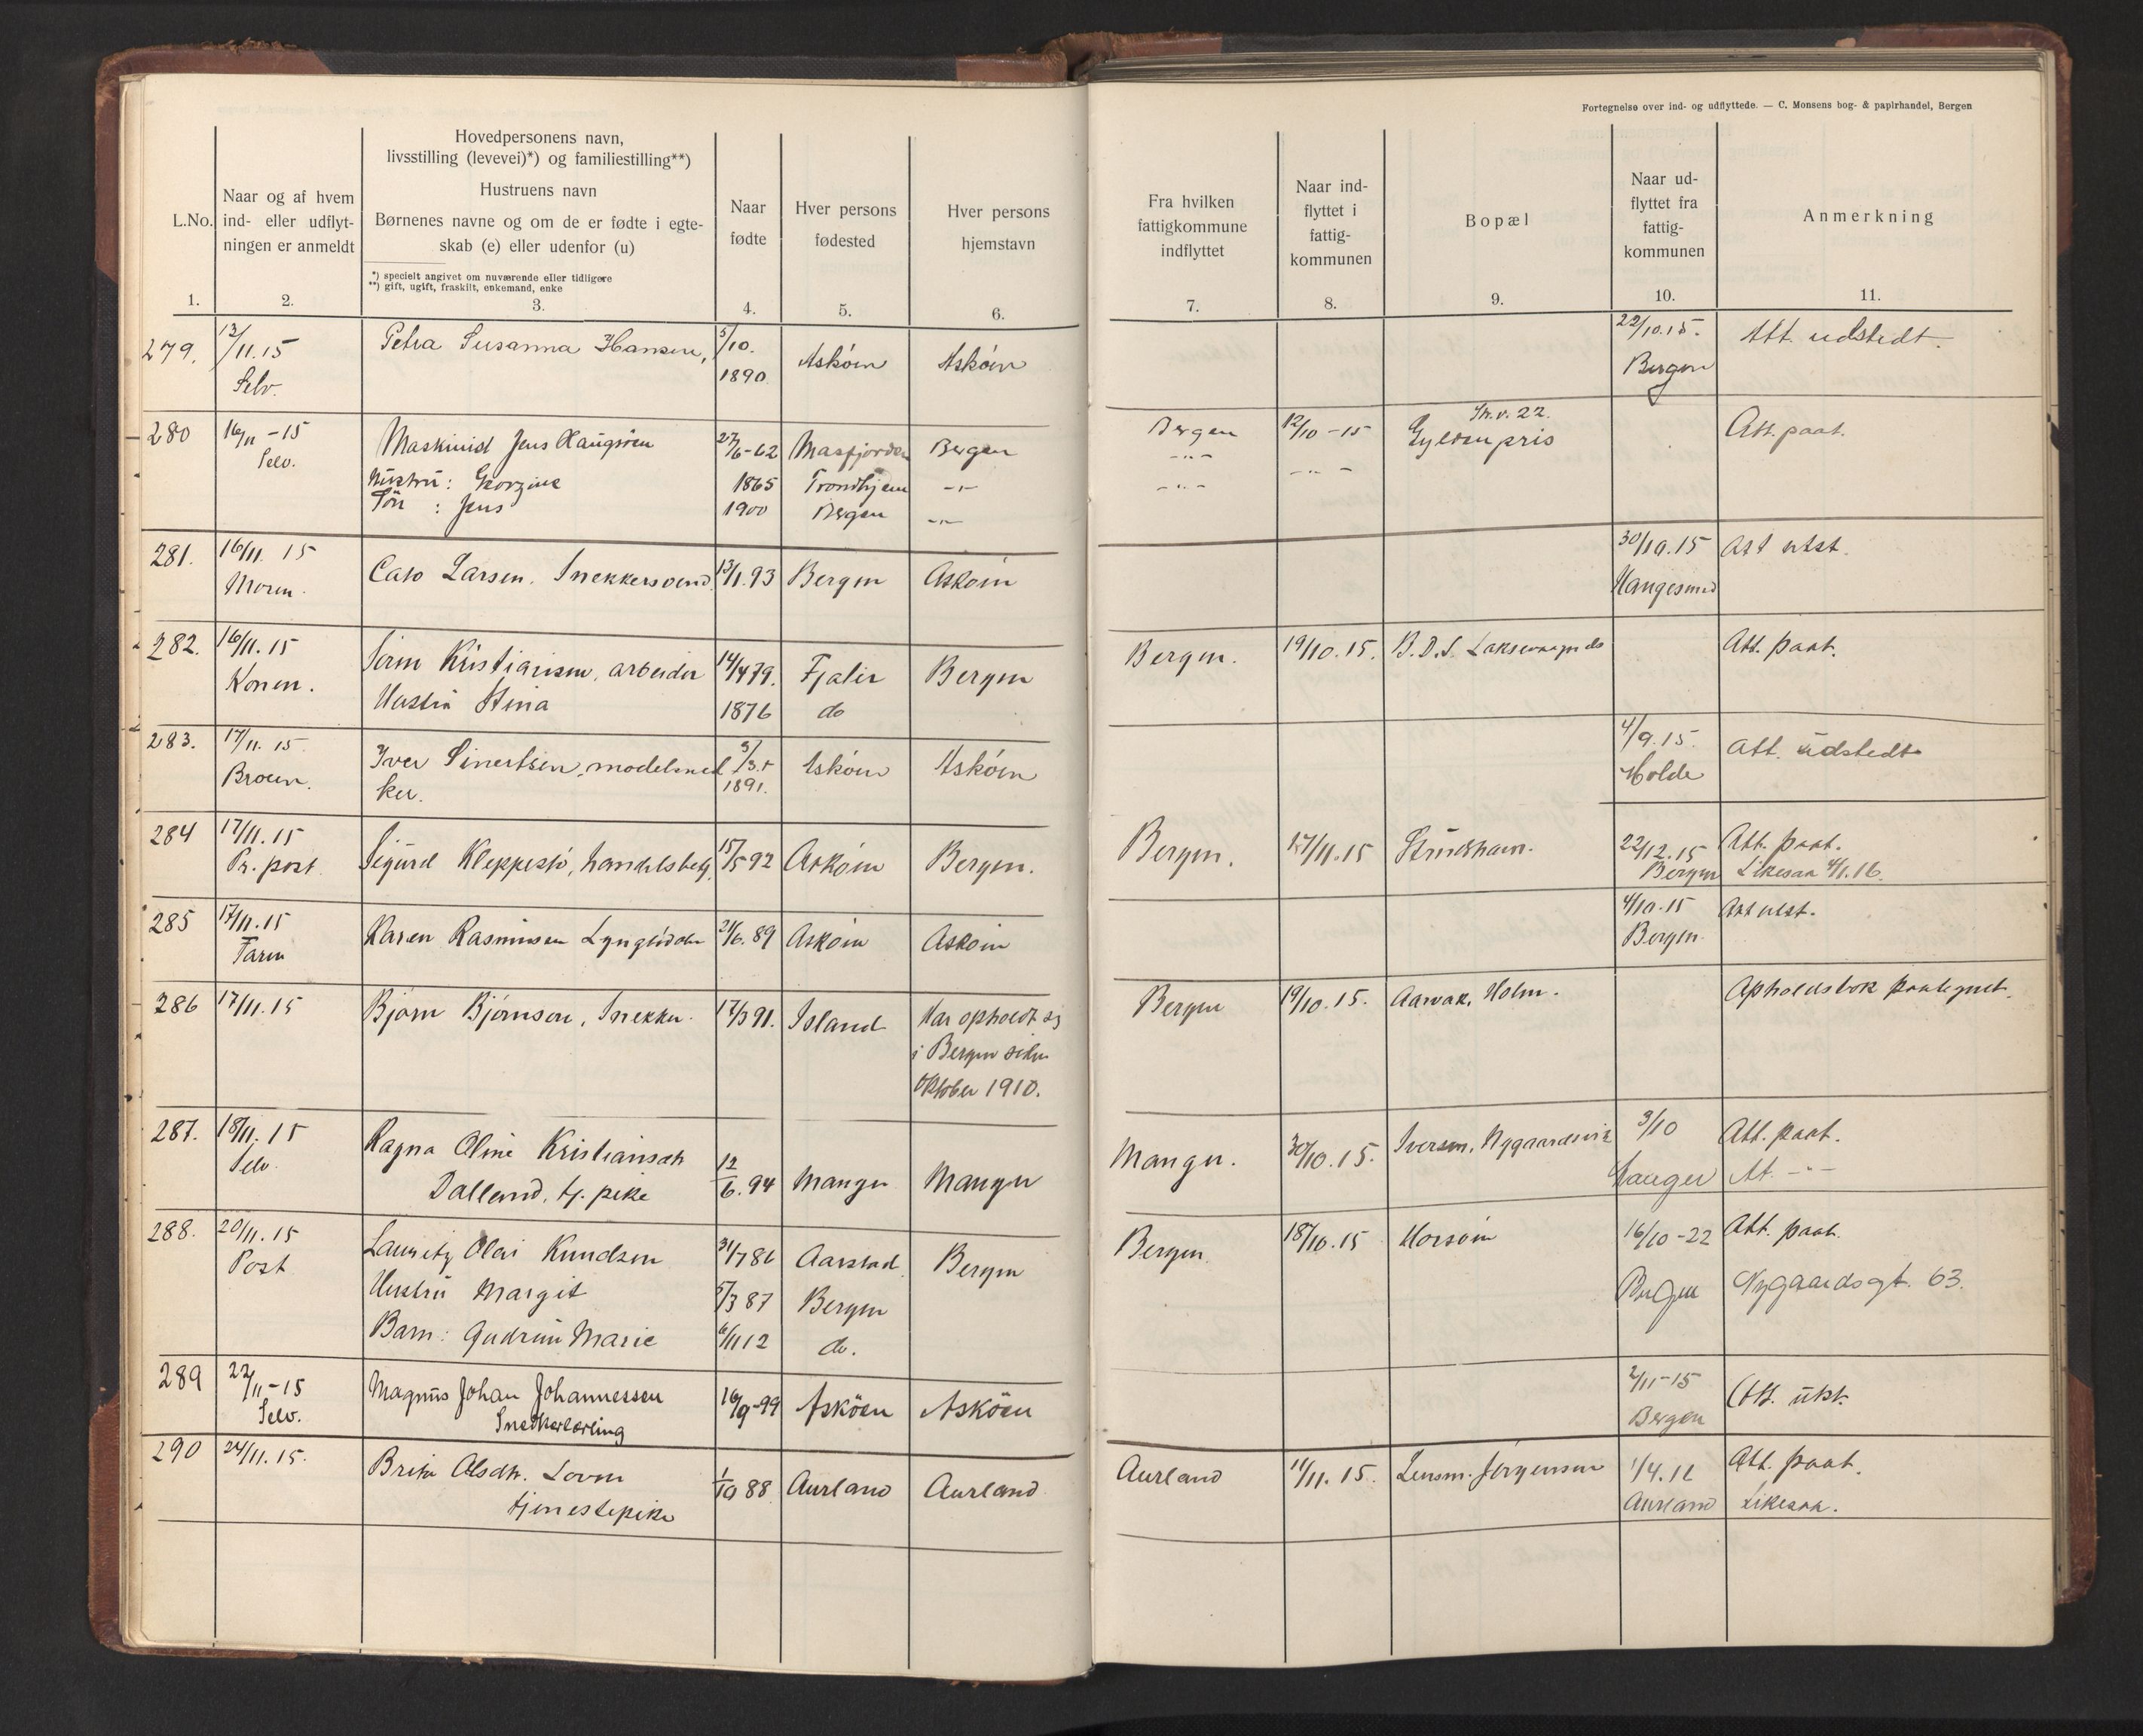 Fortegnelse over ind- og udflyttede. — C. Monsens bog- & papirhandel, Bergen
L.No.
1.
Naar og af hvem
ind- eller udflyt-
ningen er anmeldt
2.
Hovedpersonens navn,
livsstilling (levevei)*) og familiestilling**)
Hustruens navn
Børnenes navne og om de er fødte i egte-
skab (e) eller udenfor (u)
*) specielt angivet om nuværende eller tidligere
**) gift, ugift, fraskilt, enkemand, enke
3.
Naar
fødte
4.
Hver persons
fødested
5.
Hver persons
hjemstavn
6.
Fra hvilken
fattigkommune
indflyttet
7.
Naar ind-
flyttet i
fattig-
kommunen
8.
Bopæl
9.
Naar ud-
flyttet fra
fattig-
kommunen
10.
Anmerkning
11.
279. 12/11.15 Petra Susanna Hansen, 5/10. Askøen Askøen 22/10.15. Att. udstedt.
Selv. 1890 Bergen
280 16/11-15 Maskinist Jens Haugsøen 27/6-62 Masfjorden Bergen Bergen 12/10-15 Gyldenpris 22. Att. paat.
Selv. Hustru: Georgine 1865 Trondhjem -"- -"- -"-
Søn: Jens 1900 Bergen -"- -"-
281. 16/11. 15 Caro Larsen. Snekkersvend 13/1.93 Bergen Askøin 30/10.15 Att utst.
Moren. Haugesund
282. 16/11.15 Kristiansen, arbeider 14/4 79. Fjaler Bergen Bergen. 19/10.15. B.D.S. Laksevaag Att. paat.
Konen. Hustru Stina 1876 do
283. 17/11. 15. Iver Sinertsen, modelsned 3/3. Askøen Askøen 4/9.15. Att. udstedt
Broren. ker. 1891. Molde
284 17/11.15 Sigurd Kleppestø, handelsbetj. 15/5 92 Askøin Bergen. Bergen. 17/11.15 Strudshavn. 22/12.15 Att. paat.
Pr. post. Bergen Likesaa 4/1.16.
285 17/11.15 Karen Rasmussen 21/6.89 Askøin Askøin 4/10.15 Att utst.
Faren Bergen.
286 17/11.15 Bjørn Bjørnson, Snekker. 17/3 91. Island Har opholdt sig Bergen 19/10.15. Aarvak, Holm. Opholdsbok paategnet.
i Bergen siden
oktober 1910.
287. 18/11.15 Ragna Oline Kristiansdtr Manger. 30/10.15. Iversen, Nygaardsvik 3/10 Att. paat.
Selv. Dalland, tj. pike 12/6.94 Manger Manger Manger At. -"-
288. 20/11.15 Lauritz Olai Knudsen 31/7 86 Aarstad Bergen Bergen. 18/10.15 Horsøin 16/10-22 Att. paat.
Post Hustru Margit 5/3 87 Bergen Bergen Nygaardsgt. 63.
Barn: Gudrun Marie 6/11 12 do.
289 22/11-15 Magnus Johan Johannessen 16/9-99 Askøen Askøen 2/11-15 Att. utst.
Selv. Snedkerlærling Bergen
290 24/11.15. Brita Olsdtr. 1/10 88 Aurland Aurland Aurland 11/11.15. Lensm. Jørgensen 1/4. Att. paat.
tjenestepike Aurland Likesaa.